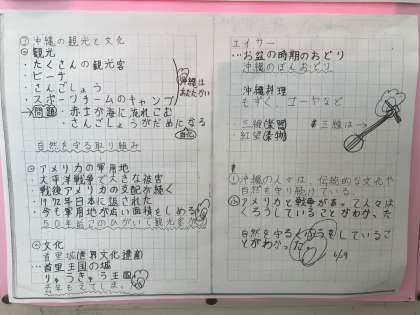 ⑦ 沖縄の観光と文化
◎観光
・たくさんの観光客
・ビーチ
・さんごしょう
・スポーツチームのキャンプ
沖縄は
あたたかい
→問題・赤土が海に流れこむ
・さんごしょうがだめになる
自然を守る取り組み
◎アメリカの軍用地
・太平洋戦争で大きな被害
・戦後アメリカの支配が続く
・1972年日本に返された
・今も軍用地が広い面積をしめる
◎文化
首里城(世界文化遺産)
…首里王国の城
りゅうきゅう王国
エイサー
…お盆の時期のおどり
沖縄のぼんおどり
沖縄料理
もずく、ゴーヤなど
・三線
三線は→
・紅型
①沖縄の人々は、伝統的な文化や
自然を守り続けている。
アメリカと戦争があって人々は
くろうしていることがわかった
自然を守るくふうをしているこ
とがわかった。